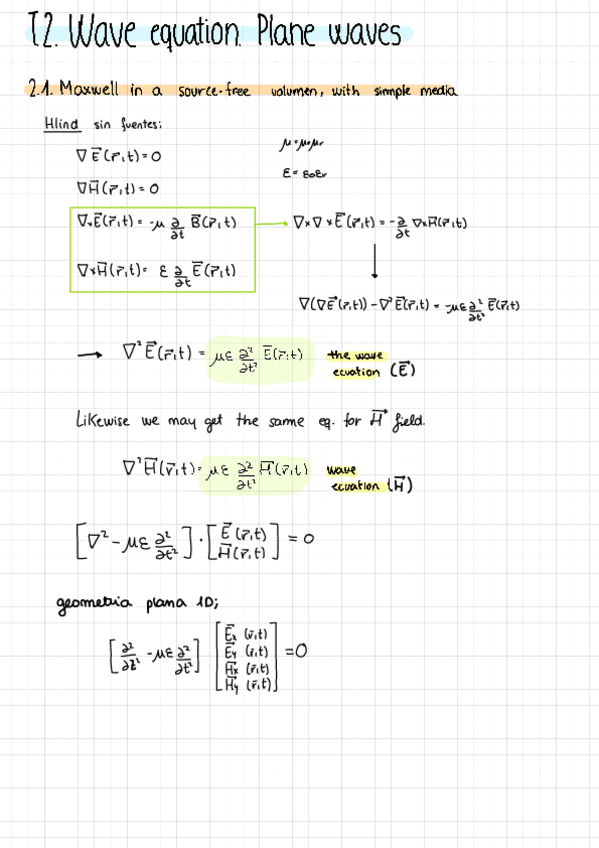 T2. Wave equation. Plane waves
2.1. Maxwell in a source-free volumen, with simple media
Hlind sin fuentes:
∇E⃗(r⃗,t)=0
μ=μ₀μr
ε=ε₀εr
∇H⃗(r⃗,t)=0
∇×E⃗(r⃗,t)= -μ ∂/∂t B⃗(r⃗,t) → ∇×∇×E⃗(r⃗,t)= -∂/∂t ∇×H⃗(r⃗,t)
∇×H⃗(r⃗,t)= ε ∂/∂t E⃗(r⃗,t)
∇(∇E⃗(r⃗,t))-∇²E⃗(r⃗,t)= -με ∂²/∂t² E⃗(r⃗,t)
→ ∇²E⃗(r⃗,t) = με ∂²/∂t² E⃗(r⃗,t) the wave
ecuation (E⃗)
Likewise we may get the same eq. for H⃗ field.
∇²H⃗(r⃗,t)= με ∂²/∂t² H⃗(r⃗,t) wave
ecuation (H⃗)
[∇²-με ∂²/∂t²]·[E⃗(r⃗,t) H⃗(r⃗,t)] = 0
geometria plana 1D;
[∂²/∂z² -με ∂²/∂t²] [E⃗x (r⃗,t)
E⃗y (r⃗,t)
H⃗x (r⃗,t)
H⃗y (r⃗,t)] =0